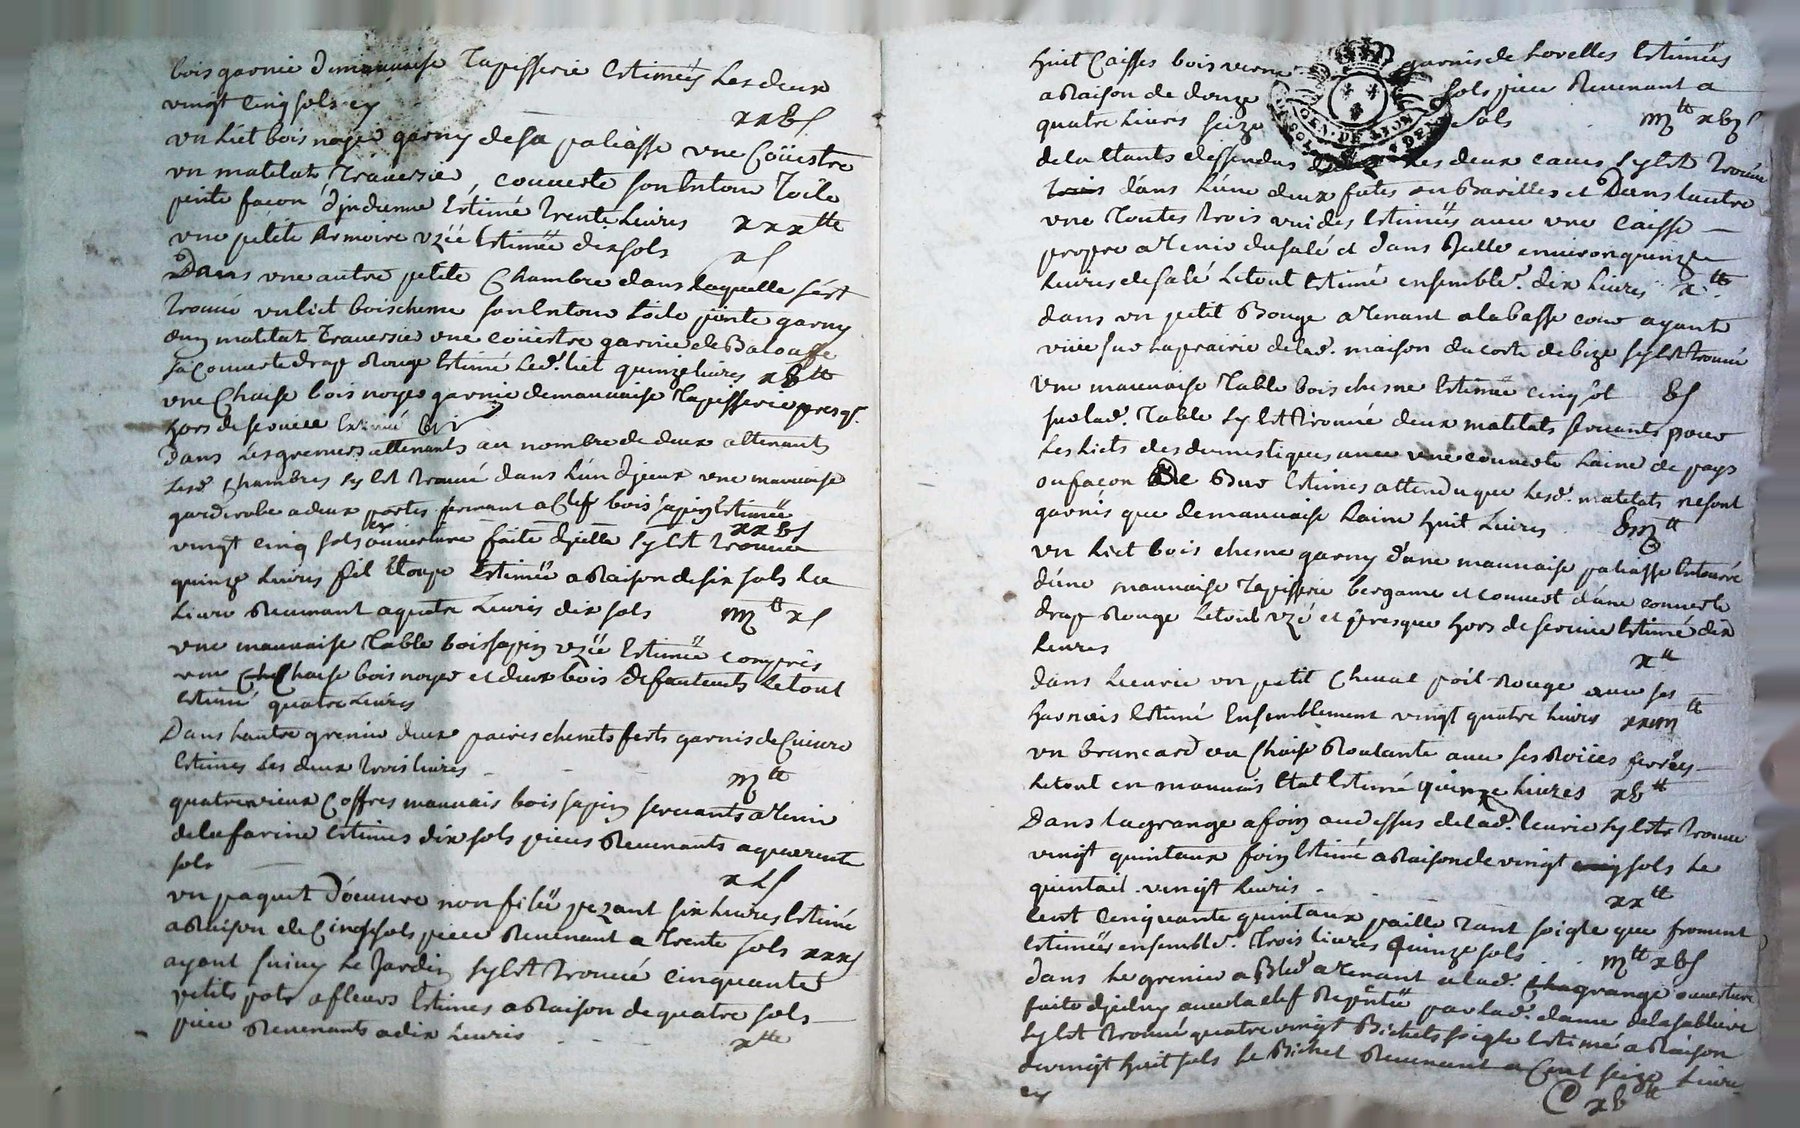 bois garnie de mauvaise Tapisserie Estimées Les deux
vingt Cinq sols cy
xxbs
un Lict bois noyer garny de sa paliasse une Coüestre
un matelat Traversie couverte son Entour Toile
peinte façon d'jndienne Estimé trente Livres xxx tt
une petite Armoire uzéé Estimée dix sols xs
Dans une autre petite Chambre dans laquelle s'est
Trouvé un lict bois chesne son Entour toile peinte garny
d'un matelat Traversie une coüestre garnie de Balouffe
sa Couverte drap Rouge Estimé Led. lict quinze livres xb tt
une Chaise bois noyer garnie de mauvaise Tapisserie presq.
hors de service Estimé
dans Les greniers attenants au nombre de deux attenants
Lesd chambres sy Est trouvé dans L'un d'jceux une mauvaise
garderobe a deux portes fermant a Clef bois sapin Estimée
vingt cinq sols xxbs
ouverture faite d'jcelle sy Est trouvé
quinze Livres fil Etoupe Estimée a Raison de six sols La
Livre Revenant a quatre Livres dix sols iiij tt xs
une mauvaise Table bois sapin uzéé Estimée compris
une Chaise bois noyer et deux bois de fauteuils Le tout
Estimé quatre Livres
Dans L'autre grenier deux paires chenets ferts garnis de Cuivre
Estimes Les deux trois livres iij tt
quatre vieux Coffres mauvais bois sapin servants a Tenir
de la farine Estimes dix sols piece Revenants a quarente
sols xLs
un paquet d'oeuvre non filée pezant six Livres Estimé
a Raison de Cinq sols piece Revenant a Trente sols xxxs
ayant suivy Le Jardin sy Est Trouvé Cinquante
petits pots a fleurs Estimes a Raison de quatre sols
piece Revenants a dix Livres x tt
huit Caisses bois verne garnis de Estimées
a Raison de douze sols piece Revenant a
quatre Livres seize sols iiij tt xbjs
GEN. DE LYON
de la Etants dessendus les deux caves sy Est Trouvé
dans L'une deux futes ou Barilles et Dans L'autre
une Toutes trois vuides Estimées avec une Caisse
propre a Tenir du salé et dans Icelle environ quinze
Livres de salé Le tout Estimé ensemble. dix Livres x tt
dans un petit Bouge a Tenant a la basse cour ayant
vüe sur La prairie de lad. maison du coste de bize sy Est trouvé
une mauvaise Table bois chesne Estimée cinq sols bs
sur lad. Table sy Est Trouvé deux matelats servants pour
Les Licts des domestiques avec une couverte Laine de pays
ou façon de Estimes attendu que Lesd. matelats ne sont
garnis que de mauvaise Laine huit Livres biij tt
un Lict bois chesne garny d'une mauvaise paliasse Entouré
d'une mauvaise Tapisserie bergame et couvert d'une couverte
drap Rouge Le tout uzé et presque hors de service Estimé dix
Livres x tt
dans Lecurie un petit Cheval poil Rouge avec ses
harnois Estimé Ensemblement vingt quatre Livres xxiiij tt
un brancard ou Chaise Roulante avec ses Roües ferrées
Le tout en mauvais Etat Estimé quinze Livres xb tt
Dans la grange a foin au dessus de lad. Ecurie sy Est trouvé
vingt quintaux foin Estimé a Raison de vingt sols Le
quintail vingt Livres xx tt
Cent Cinquante quintaux paille Tant seigle que froment
Estimées ensemble. Trois Livres quinze sols iij tt xbs
dans Le grenier a Bled a Tenant a lad. grange ouverture
faite d'jceluy avec la clef par lad. dame de la sabliere
sy Est trouvé quatre vingt Bichets seigle Estimé a Raison
de vingt huit sols Le Bichet Revenant a Cent seize Livres
cy C xb tt